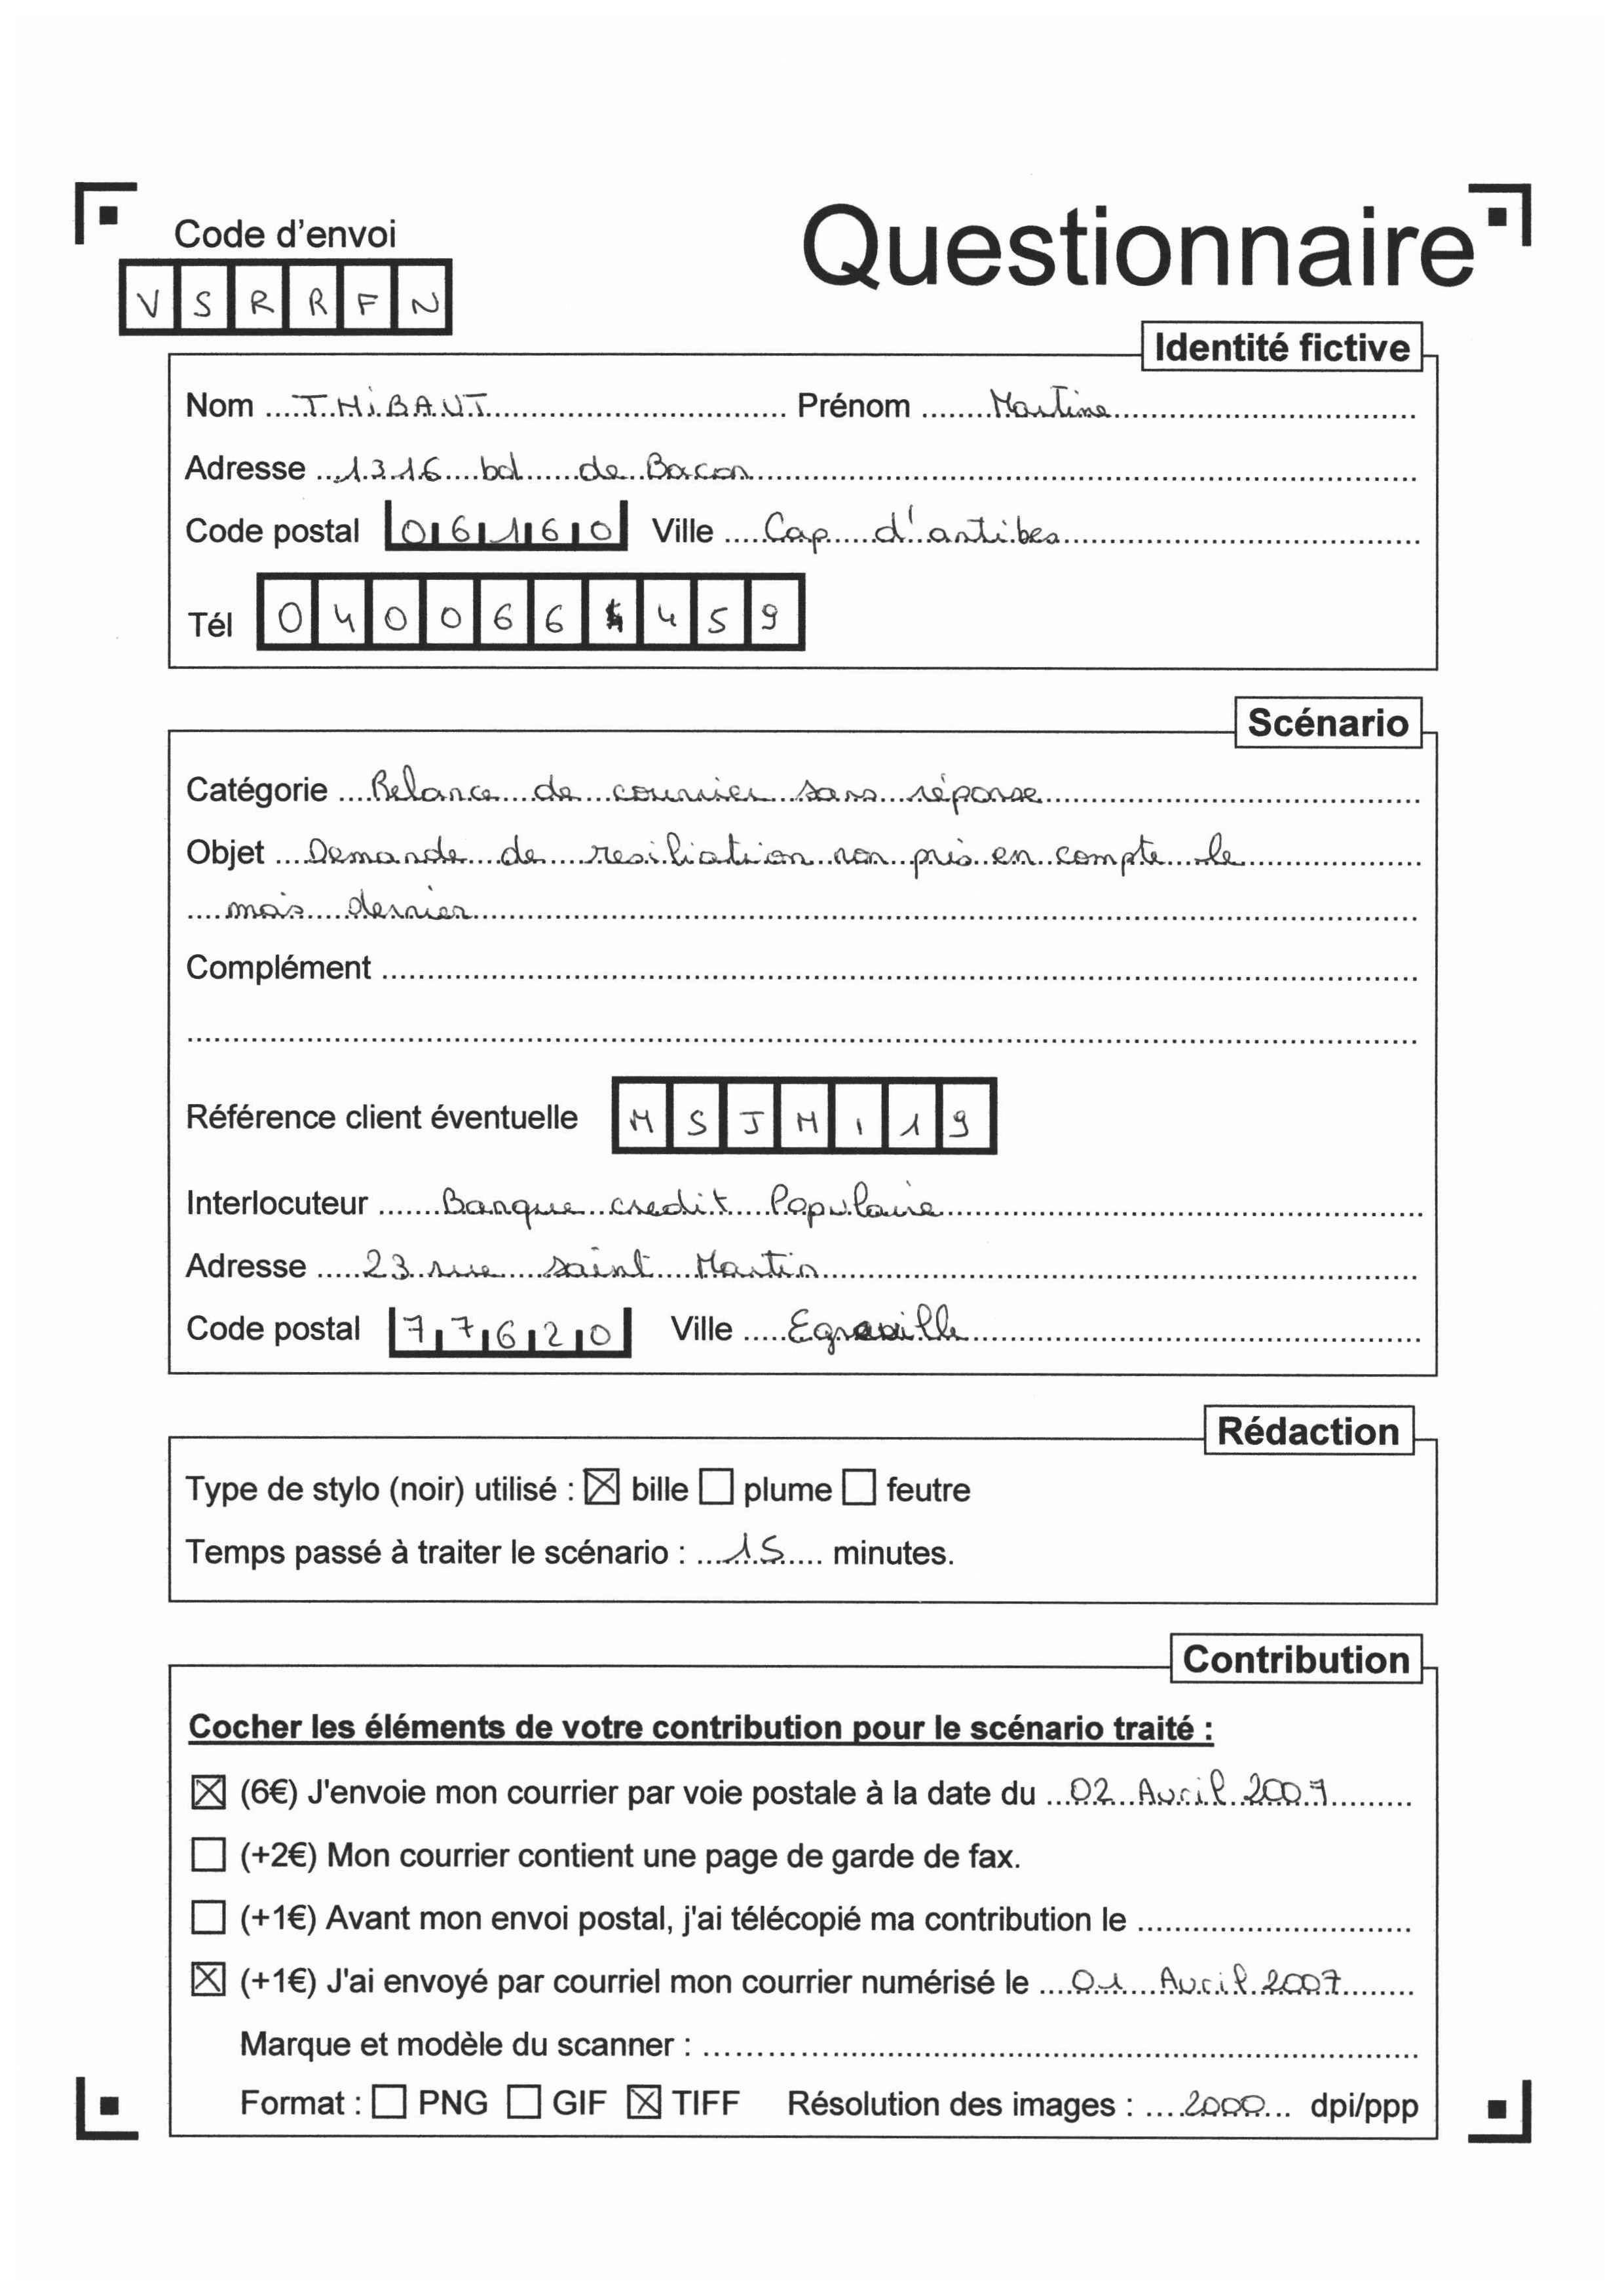 Code d'envoi
Questionnaire
V S R R F N
Identité fictive
Nom THiBAUT Prénom Martine
Adresse 1316 bd de Bacon
Code postal 06160 Ville Cap d'antibes
Tél 0 4 0 0 6 6 4 4 5 9
Scénario
Catégorie Relance de courrier sans réponse
Objet Demande de resiliation non pris en compte le
mois dernier
Complément
Référence client éventuelle M S J M I 1 9
Interlocuteur Banque credit Populaire
Adresse 23 rue saint Martin
Code postal 77620 Ville Egreville
Rédaction
Type de stylo (noir) utilisé : ☒ bille ☐ plume ☐ feutre
Temps passé à traiter le scénario : 15 minutes.
Contribution
Cocher les éléments de votre contribution pour le scénario traité :
☒ (6€) J'envoie mon courrier par voie postale à la date du 02 Avril 2007
☐ (+2€) Mon courrier contient une page de garde de fax.
☐ (+1€) Avant mon envoi postal, j'ai télécopié ma contribution le
☒ (+1€) J'ai envoyé par courriel mon courrier numérisé le 01 Avril 2007
Marque et modèle du scanner :
Format : ☐ PNG ☐ GIF ☒ TIFF Résolution des images : 2000 dpi/ppp